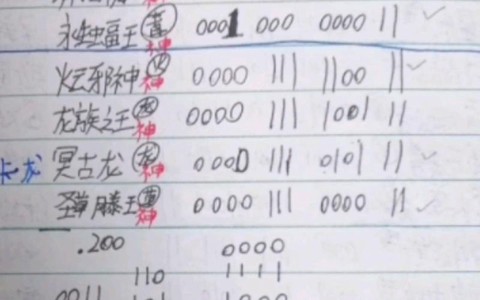 永蝠王 神 0001 000 0000 11
炫邪神 神 0000 111 1100 11
龙族之王 神 0000 111 1001 111
长龙 冥古龙 龙 神 0000 111 0101 11
圣草藤王 草 神 0000 111 0000 11
.200 0000
110 1111
0011